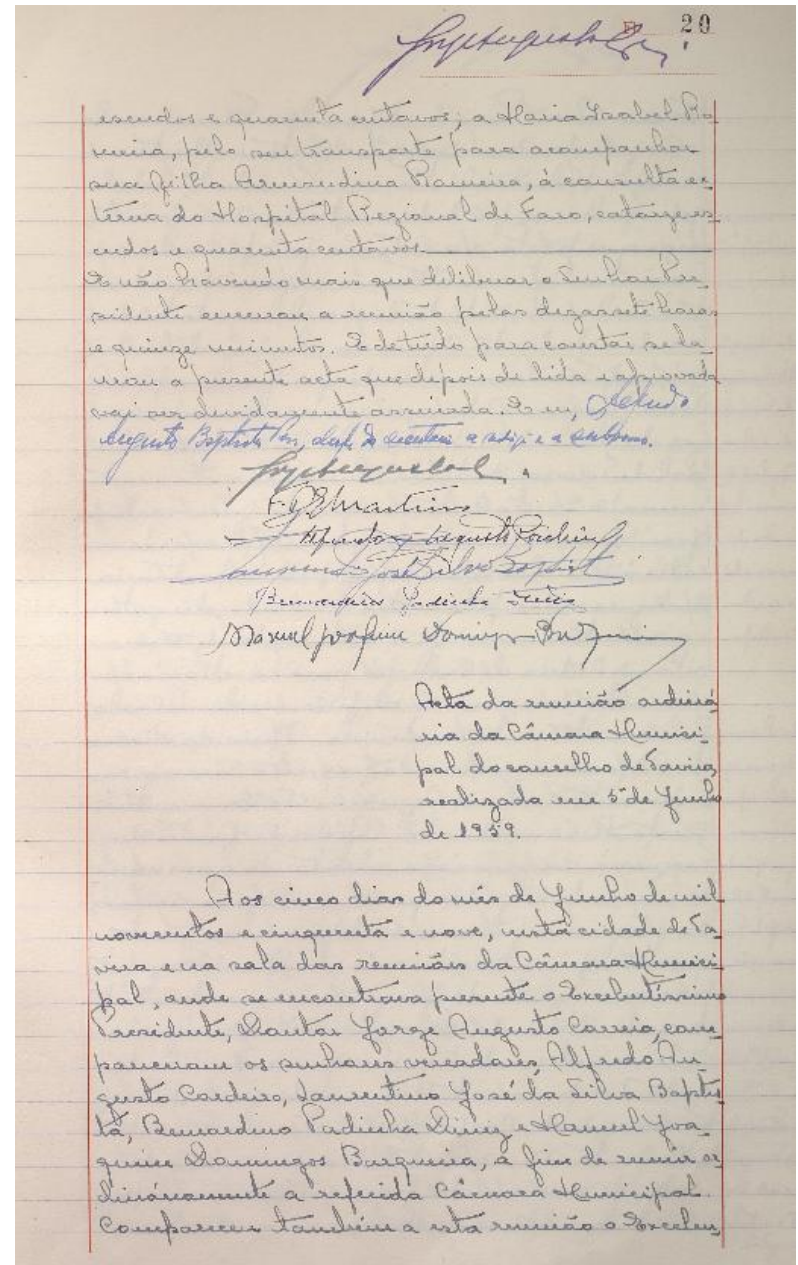 20
escudos e quarenta centavos; a Maria Isabel Ra
meira, pelo seu transporte para acompanhar
sua filha Armandina Rameira, á consulta ex
terna do Hospital Regional de Faro, catorze es
cudos e quarenta centavos.
E não havendo mais que deliberar o Senhor Pre
sidente encerrou a reunião pelas dezassete horas
e quinze minutos. E de tudo para constar se la
vrou a presente acta que depois de lida e aprovada
vai ser devidamente assinada. E eu,
Augusto Baptista, chefe da secretaria a redigi e a subscrevo.
Martins
Alfredo Augusto Cordeiro
Laurentino José Silva Baptista
Bernardino Padinha Diniz
Manuel Joaquim Domingos Barqueira
Acta da reunião ordiná
ria da Câmara Munici
pal do concelho de Tavira,
realizada em 5 de Junho
de 1959.
Aos cinco dias do mês de Junho de mil
novecentos e cinquenta e nove, nesta cidade de Ta
vira e na sala das reuniões da Câmara Munici
pal, onde se encontrava presente o Excelentíssimo
Presidente, Doutor Jorge Augusto Correia, com
pareceram os senhores vereadores, Alfredo Au
gusto Cordeiro, Laurentino José da Silva Baptis
ta, Bernardino Padinha Diniz e Manuel Joa
quim Domingos Barqueira, a fim de reunir or
dináriamente a referida Câmara Municipal.
Compareceu também a esta reunião o Excelen